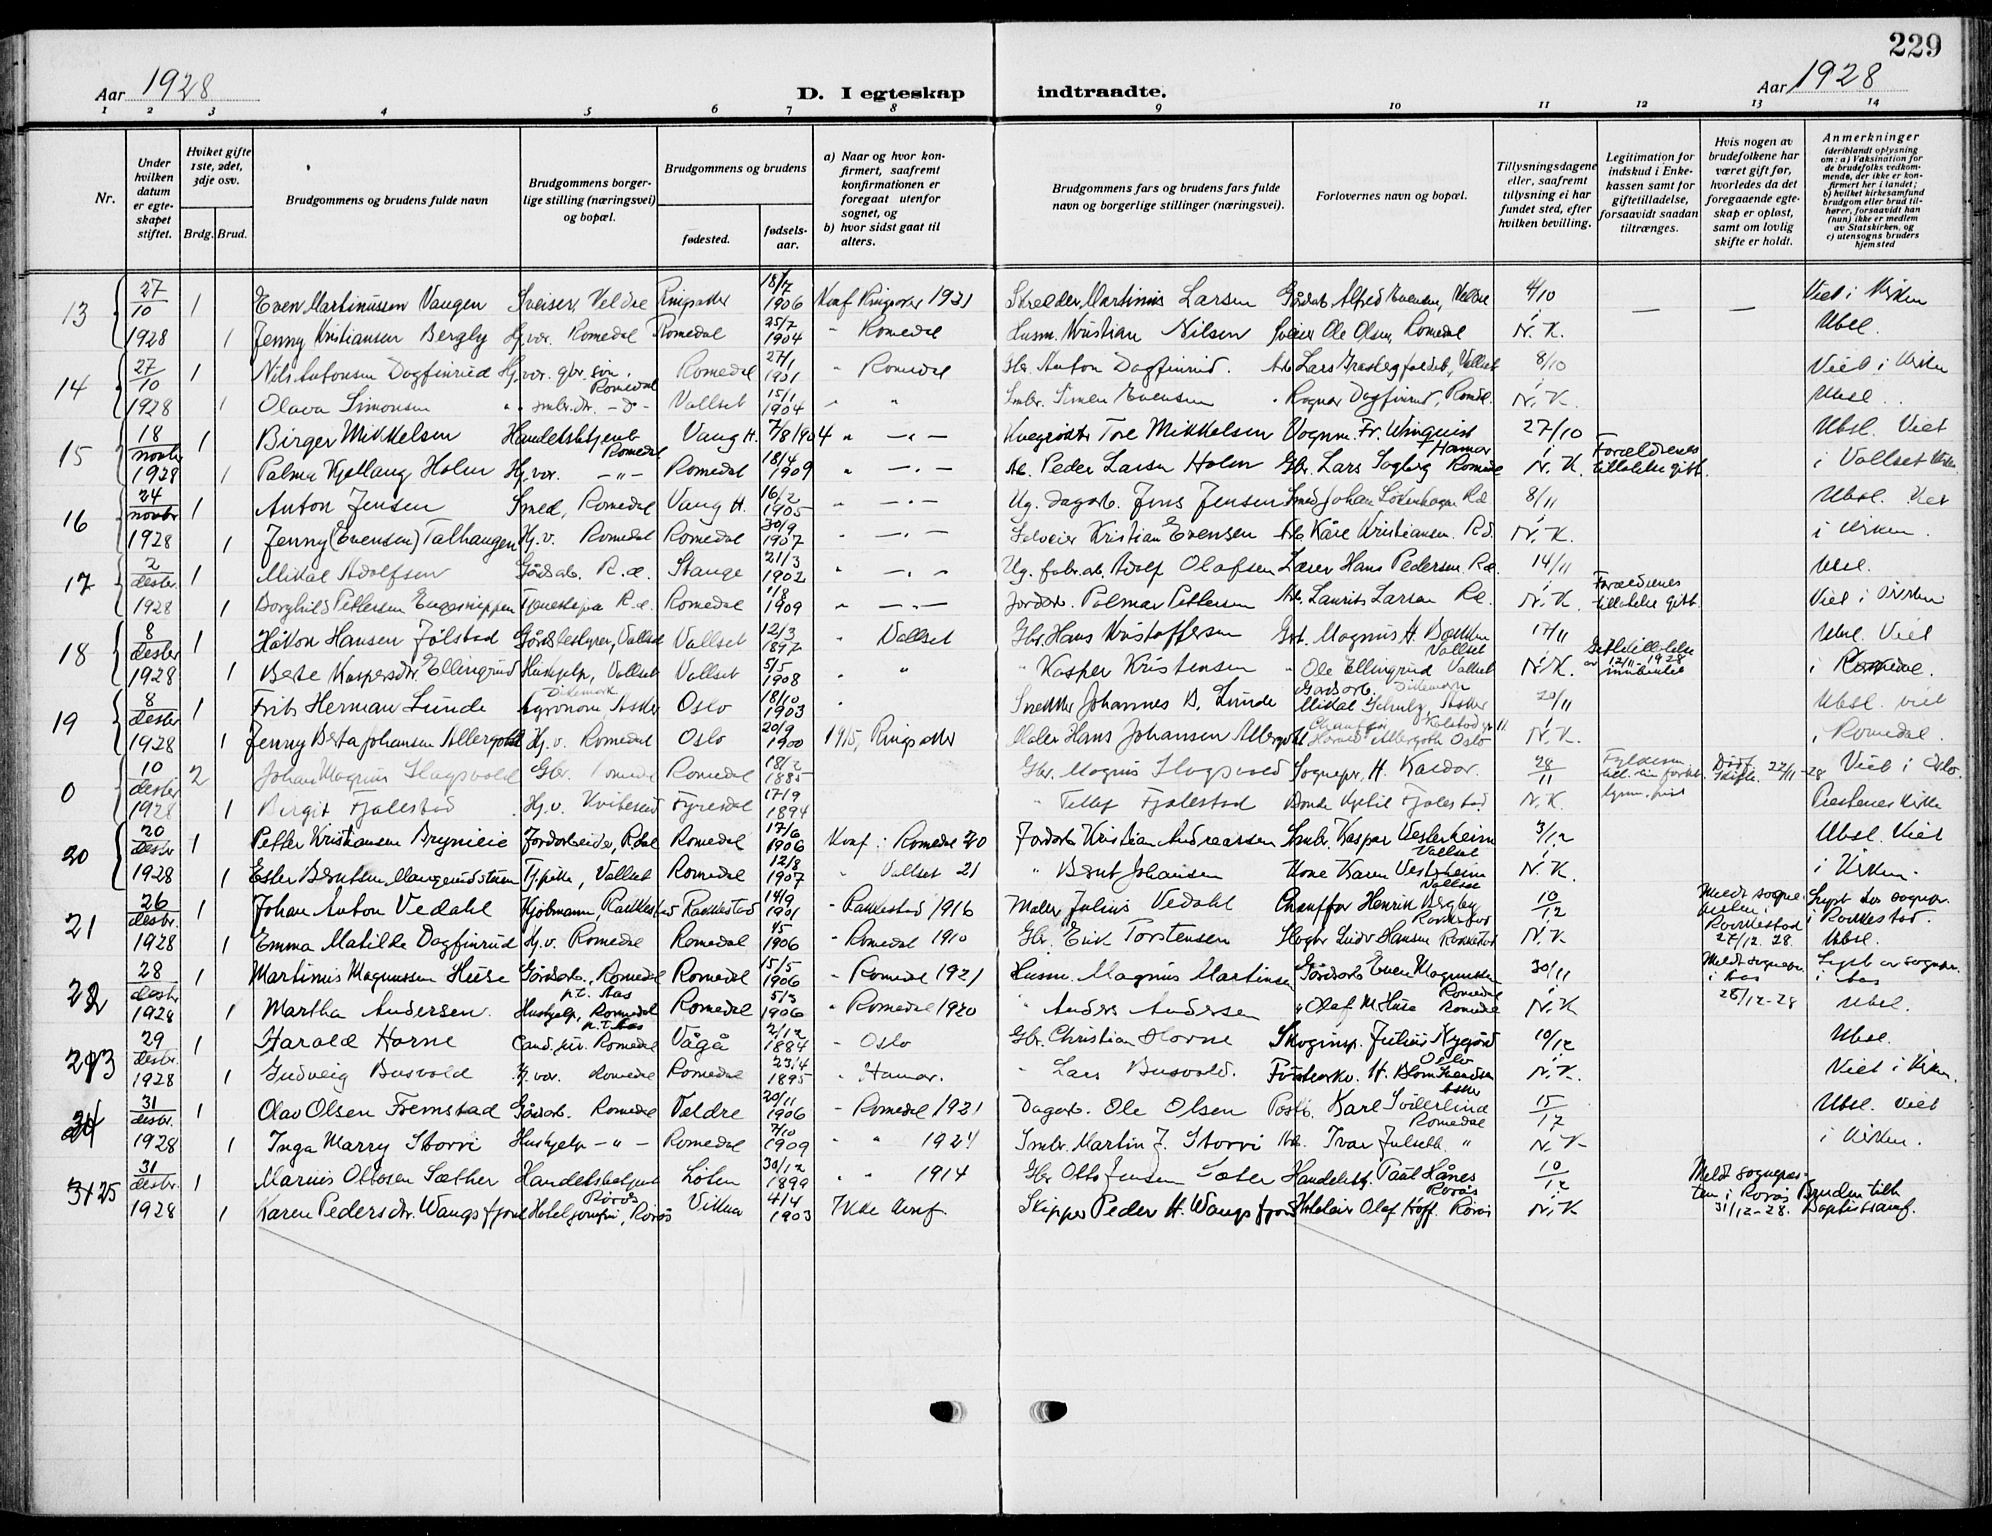 229
Aar 1928 D. I egteskap indtraadte. Aar 1928
1 2 3 4 5 6 7 8 9 10 11 12 13 14
Nr.
Under hvilken datum er egteskapet stiftet.
Hviket gifte 1ste, 2det, 3dje osv.
Brdg. Brud.
Brudgommens og brudens fulde navn
Brudgommens borgerlige stilling (næringsvei) og bopæl.
Brudgommens og brudens
fødested.
fødselsaar.
a) Naar og hvor konfirmert, saafremt konfirmationen er foregaat utenfor sognet, og
b) hvor sidst gaat til alters.
Brudgommens fars og brudens fars fulde navn og borgerlige stillinger (næringsvei).
Forlovernes navn og bopæl.
Tillysningsdagene eller, saafremt tillysning ei har fundet sted, efter hvilken bevilling.
Legitimation for indskud i Enkekassen samt for giftetilladelse, forsaavidt saadan tiltrænges.
Hvis nogen av brudefolkene har været gift før, hvorledes da det foregaaende egteskap er opløst, samt om lovlig skifte er holdt.
Anmerkninger (deriblandt oplysning om: a) Vaksination for de brudefolks vedkommende, der ikke er konfirmert her i landet; b) hvilket kirkesamfund brudgom eller brud tilhører, forsaavidt han (hun) ikke er medlem av Statskirken, og c) utensogns bruders hjemsted
13 27/10 1 Even Martinussen Vangen Sveiser, Veldre Ringsaker 18/7 1906 Konf Ringsaker 1921 Skredder Martinus Larsen Gårdarb. Alfred Evensen, Veldre 4/10 — — Viet i Kirken
1928 1 Jenny Kristiansen Bergly Hj.vær. Romedal Romedal 25/7 1904 " Romedal Husm. Kristian Nilsen Sveiser Ole Olsen, Romedal N. K. Ubsl.
14 27/10 1 Nils Antonsen Dagfinrud Hj.vær. gbr. søn, Romedal Romedal 27/1 1901 " Romedal Gbr. Anton Dagfinrud. Vallset 8/10 Viet i Kirken
1928 1 Olava Simonsen Vallset 15/1 1904 " " Smbr. Simen Evensen " Ragnar Dagfinrud, Romdl. N. K. Ubsl.
15 18/novbr 1 Birger Mikkelsen Handelsbetjent Romedal Vang H. 7/8 1904 " — " — Tore Mikkelsen Vognm. Fr. Winquist Hamar 27/10 Forældrenes Ubsl. Viet
1928 1 Palma Kjellaug Holen Hj.vær. — " — Romedal 18/4 1909 " — " — Arb. Peder Larsen Holen Gbr. Lars Romdal N. K. tillatelse gitt. i Vallset Kirke
16 24/novbr 1 Anton Jensen Smed, Romedal Vang H. 16/2 1905 " — " — Ug. Dagarb. Jens Jensen Smed Johan 8/11 Ubsl. Viet
1928 1 Jenny (Evensen) Talhaugen Hj.v. Romedal Romedal 30/9 1907 " — " — Selveier Kristian Evensen Arb. Kåre Kristiansen Rd. N. K. i Kirken.
17 2/desbr. 1 Mikal Adolfsen Gårdsarb. R.d. Stange 21/3 1902 " — " — Ug. fabr.arb. Adolf Olafsen Lærer Hans Pedersen Rd. 14/11 Forældrenes Ubsl.
1928 1 Borghild Pettersen R.d. Romedal 1/8 1909 " — " — Jordarb. Palmar Pettersen Arb. Laurits Larsen Rd. N. K. tillatelse gitt. Viet i Kirken.
18 8/desbr 1 Håkon Hansen Jølstad Gårdsbestyrer, Vallset Vallset 12/3 1897 " Vallset Gbr. Hans Kristoffersen Gbr. Magnus H. Bækken Vallset 17/11 Ubsl. Viet
1928 1 Berte Kaspersdtr. Ellingsrud Hushjelp, Vallset Vallset 5/5 1908 " " " Kasper Kristensen " Ole Ellingsrud Vallset N. K. av 12/11-1928 i Romedal.
19 8/desbr 1 Frits Herman Lunde Dikemark Agronom, Asker Oslo 18/10 1903 " Snekker Johannes B. Lunde Gårdsarb. Dikemark Mikal Asker 20/11 Ubsl. viet
1928 1 Jenny Berta Johansen Hj.v. Romedal Oslo 20/9 1900 1915, Ringsaker Maler Hans Johansen Oslo N. K. i Romedal.
0 10/desbr 2 Johan Magnus Hagsvold Gbr. Romedal Romedal 18/2 1885 Gbr. Magnus Hagsvold Sogneprs. H. Kaldor. 28/11 Skifte 22/11-28 Viet i Oslo.
1928 1 Birgit Fjalestad Hj.v. Kviteseid Fyresdal 17/9 1894 " Tellef Fjalestad Bonde Kjetil Fjalestad N. K. Kirke
20 20/desbr 1 Petter Kristiansen Brynieie Jordarbeider, R.dal Romedal 17/6 1906 Konf. i Romedal 20 Jordarb Kristian Andreassen Smbr. Kaspar Vestenheim Vallset 3/12 Ubsl. Viet
1928 1 Ester Berntsen Tj.pike, Vallset Romedal 12/8 1907 " Vallset 21 " Bernt Johansen Kone Karen Vestenheim Vallset N. K. i Kirken.
21 26/desbr. 1 Johan Anton Vedahl Kjøbmann, Rakkestad Rakkestad 14/9 1901 " Rakkestad 1916 Maler Julius Vedahl Chauffør Henrik Bergby 10/12 Meldt sogneprsten i Rakkestad 27/12 28. Lyst hos sogneprs. i Rakkestad.
1928 1 Emma Matilde Dagfinrud Hj.v. Romedal Romedal 1906 " Romedal 1910 Gbr. Erik Torstensen Ludv. Hansen Rakkestad N. K. Ubsl.
22 28/desbr 1 Martinus Magnussen Huse Gårdsarb., Romedal p.t. Aas Romedal 15/5 1906 " Romedal 1921 Husm. Magnus Martinsen Gårdsarb Even Magnussen Romedal 30/11 Meldt sogneprs. i Aas 28/12-28 Lyst av sogneprs. i Aas
1928 1 Martha Andersen. Hushjelp, Romedal p.t. Aas Romedal 5/3 1906 " Romedal 1920 " Anders Andersen " Olaf M. Huse Romedal N. K Ubsl.
23 29/desbr. 1 Harald Horne Cand. jur. Romedal Vågå 2/12 1884 " Oslo Gbr. Christian Horne Skoginsp. Julius Nygård Oslo 10/12 Ubsl.
1928 1 Gudveig Busvold Hj.vær. Romedal Romedal 23/4 1895 " Hamar. " Lars Busvold. N. K. Viet i Kirken.
24 31/desbr. 1 Olav Olsen Fremstad Gårdsarb. Romedal Veldre 20/11 1906 " Romedal 1921 Dagarb. Ole Olsen Postb. Karl Söderlind Romedal 15/12 Ubsl. Viet
1928 1 Inga Marry Storvi Hushjelp — " — Romedal 7/10 1909 " " 1924 Smbr. Martin J. Storvi Arb. Ivar Julseth " N. K i Kirken.
25 31/desbr. 1 Marius Ottosen Sæther Handelsbetjent Røros Løten 30/12 1899 " " 1914 Gbr Otto Jensen Sæter Handelsbtj. Paul Hånes Røros 10/12 Meldt sogneprsten i Røros 31/12-28. Bruden tilh. Baptistsamf.
1928 1 Karen Pedersdtr. Wangsfjord Hoteljomfru, Røros Vikna 4/4 1903 Ikke konf. Skipper Peder H. Wangsfjord Hoteleier Olaf Hoff. Røros N. K